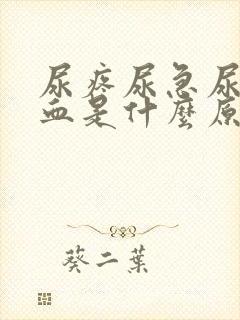 尿疼尿急尿
血是什麼原
葵二葉